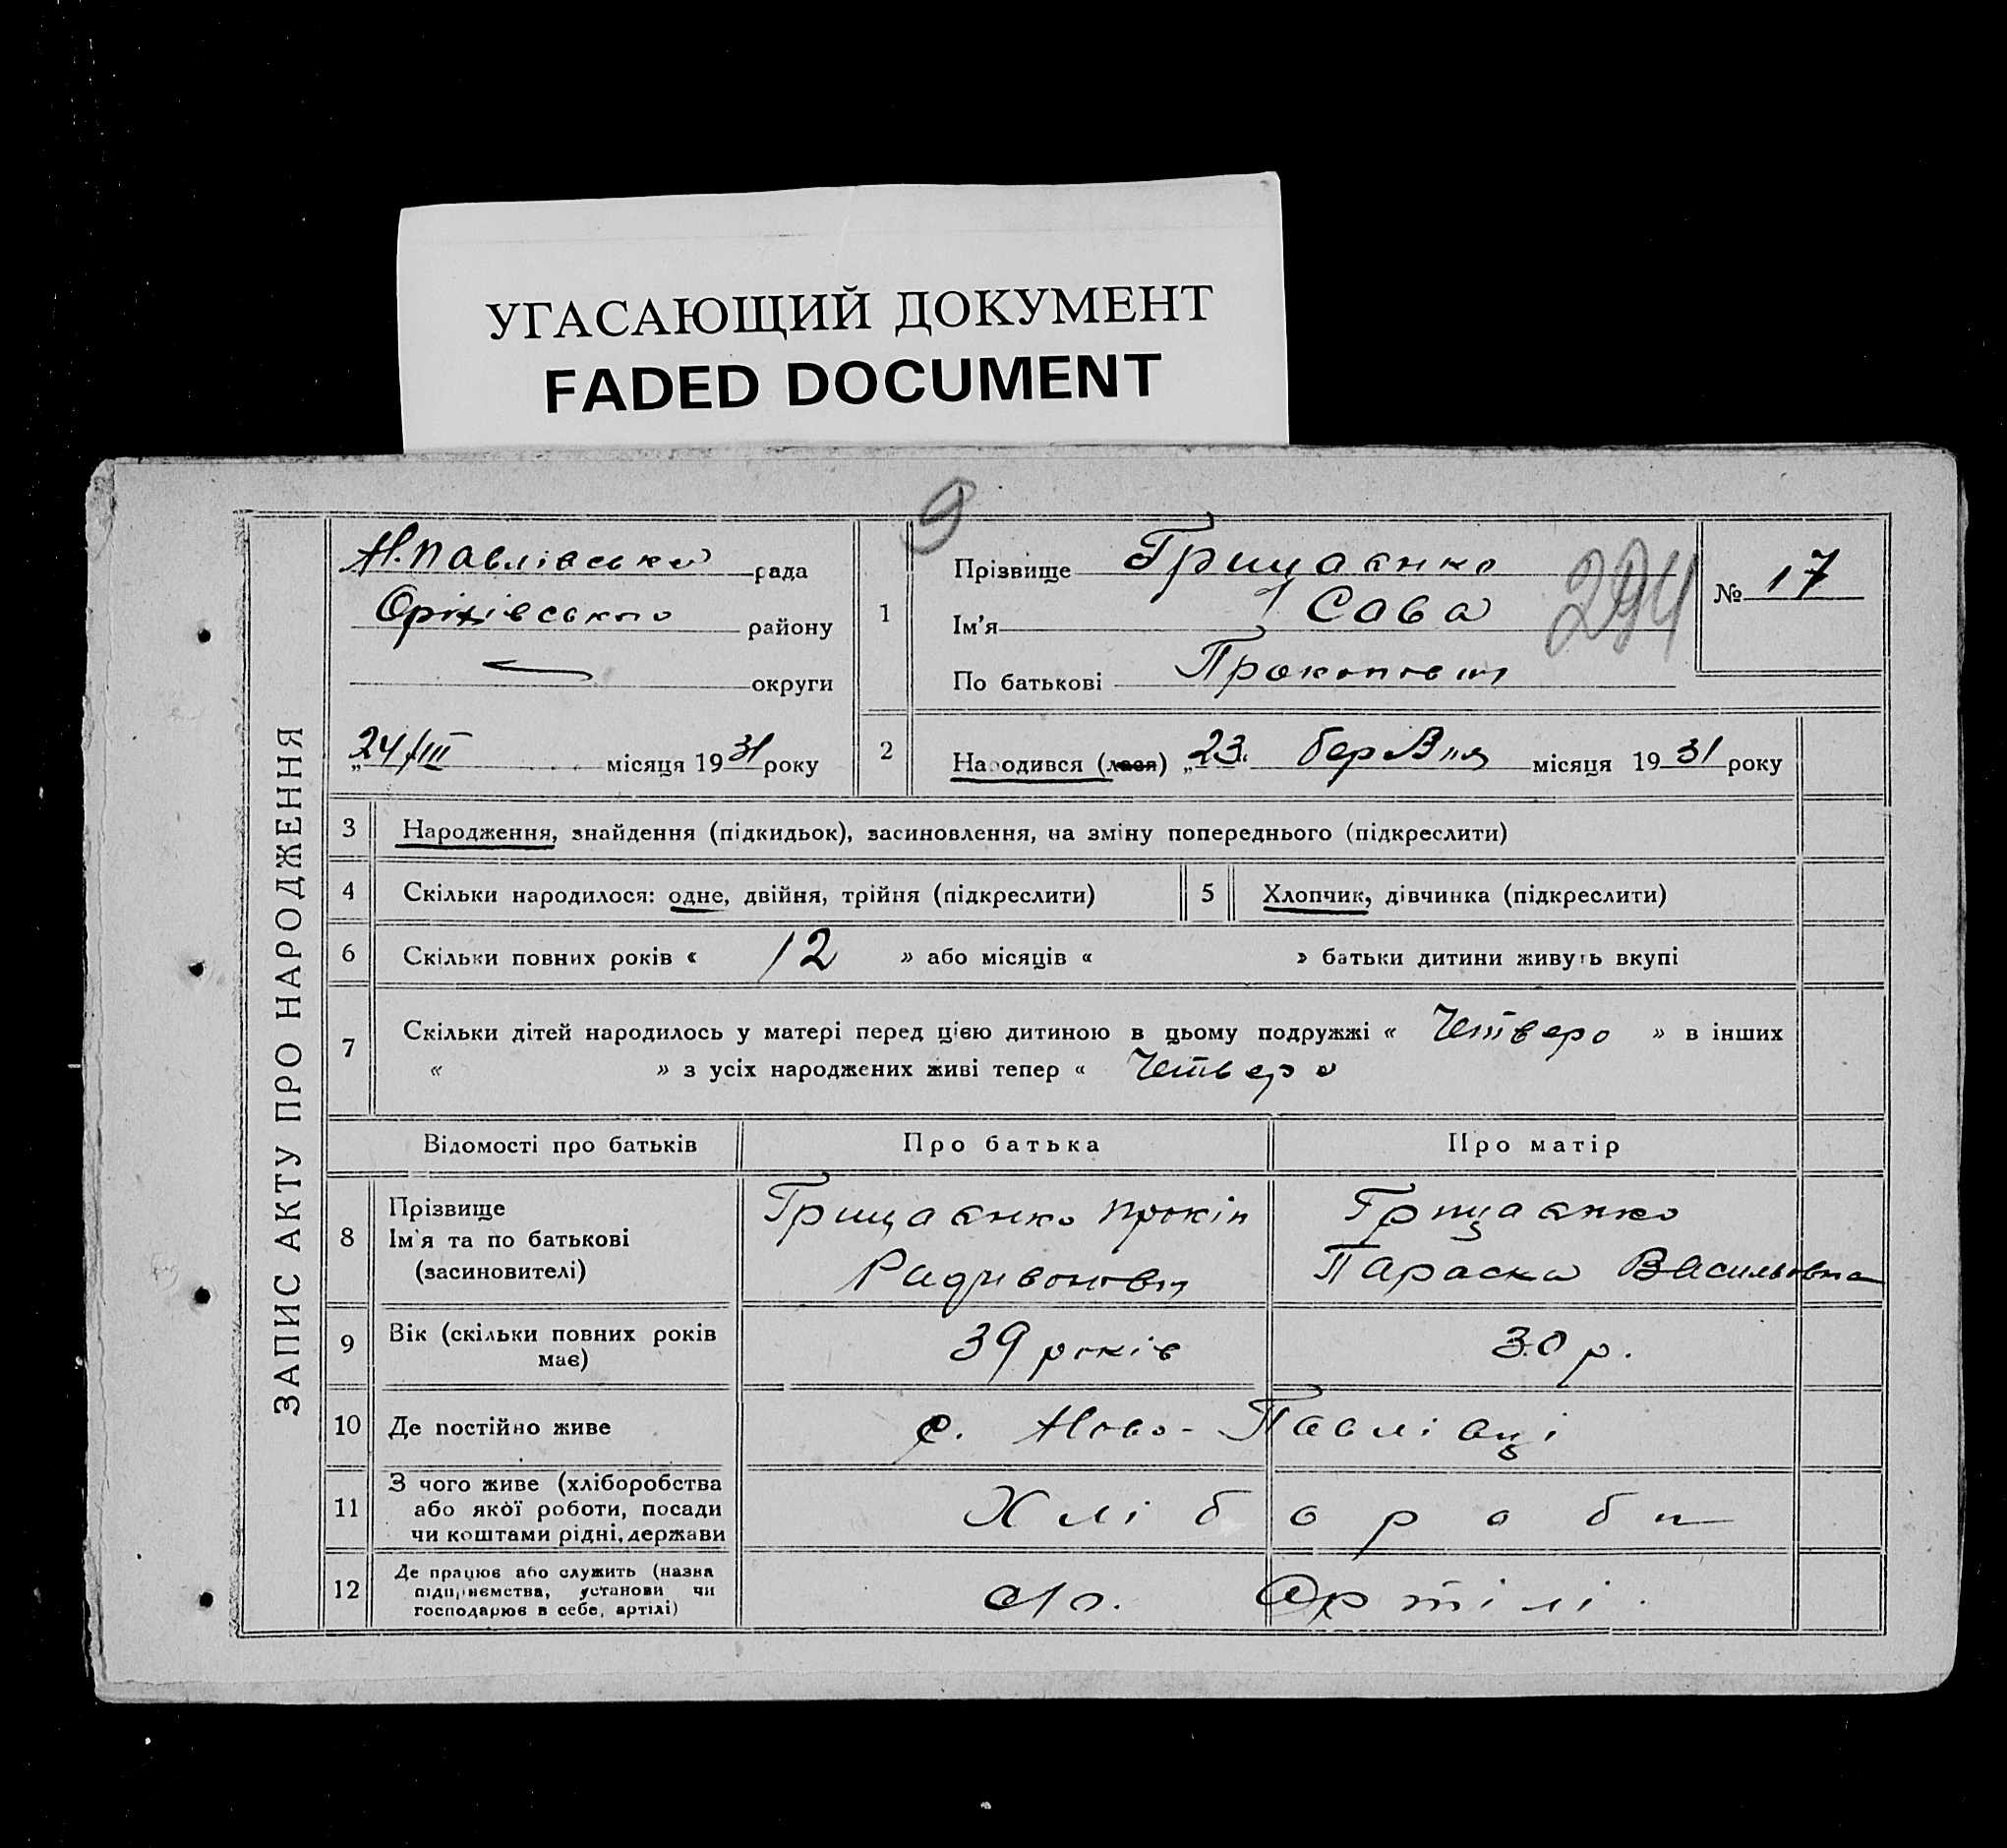 УГАСАЮЩИЙ ДОКУМЕНТ
FADED DOCUMENT
9
ЗАПИС АКТУ ПРО НАРОДЖЕННЯ
Н.Павлівська рада
Оріхівського району
округи
„24/III місяця 1931 року
1
Прізвище Грицаєнко
Ім'я Сава
По батькові Прокопович
294
№ 17
2 Народився (лася) „23" березня місяця 1931 року
3 Народження, знайдення (підкидьок), засиновлення, на зміну попереднього (підкреслити)
4 Скільки народилося: одне, двійня, трійня (підкреслити) 5 Хлопчик, дівчинка (підкреслити)
6 Скільки повних років « 12 » або місяців « » батьки дитини живуть вкупі
7 Скільки дітей народилось у матері перед цією дитиною в цьому подружжі « Четверо » в інших
« » з усіх народжених живі тепер « Четверо
Відомості про батьків Про батька Про матір
8 Прізвище
Ім'я та по батькові
(засиновителі)
Грицаєнко Прокіп
Радивонович
Грицаєнко
Параска Васильовна
9 Вік (скільки повних років
має)
39 років 30 р.
10 Де постійно живе с. Ново-Павлівці
11 З чого живе (хліборобства
або якої роботи, посади
чи коштами рідні, держави
Хлібороби
12 Де працює або служить (назва
підприємства, установи чи
господарює в себе, артілі)
Артілі.